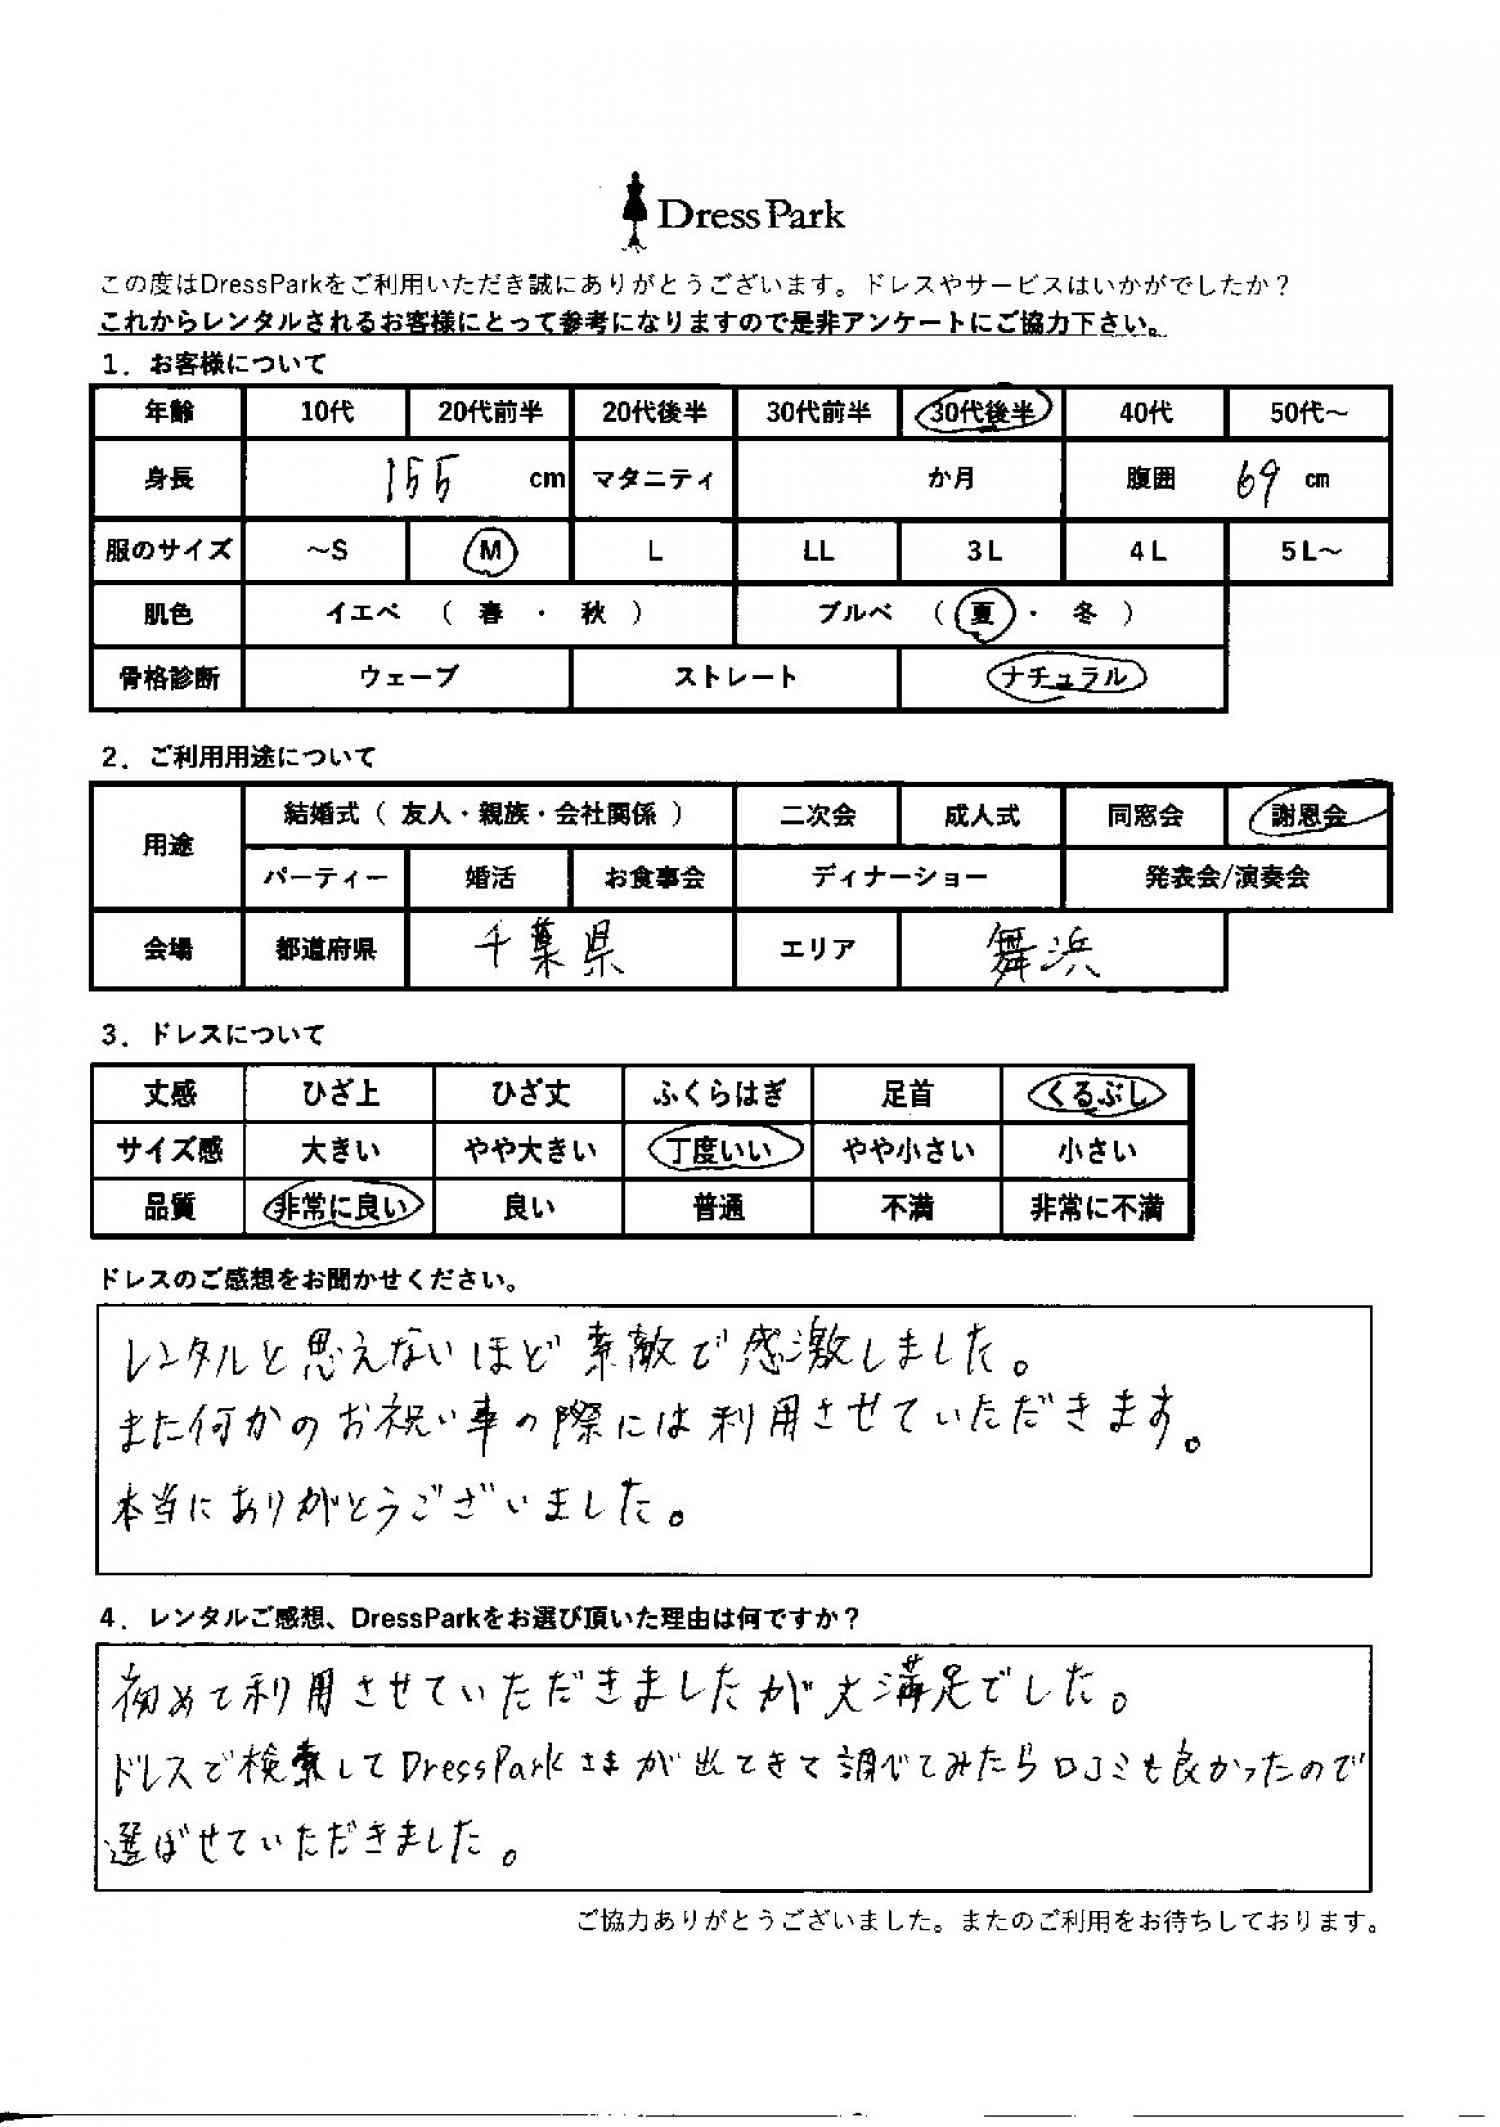 Dress Park
この度はDressParkをご利用いただき誠にありがとうございます。ドレスやサービスはいかがでしたか？
これからレンタルされるお客様にとって参考になりますので是非アンケートにご協力下さい。
1．お客様について
年齢 10代 20代前半 20代後半 30代前半 30代後半 40代 50代～
身長 155 cm マタニティ か月 腹囲 69 cm
服のサイズ ～S M L LL 3L 4L 5L～
肌色 イエベ （ 春 ・ 秋 ） ブルベ （ 夏 ・ 冬 ）
骨格診断 ウェーブ ストレート ナチュラル
2．ご利用用途について
用途 結婚式（ 友人・親族・会社関係 ） 二次会 成人式 同窓会 謝恩会
パーティー 婚活 お食事会 ディナーショー 発表会/演奏会
会場 都道府県 千葉県 エリア 舞浜
3．ドレスについて
丈感 ひざ上 ひざ丈 ふくらはぎ 足首 くるぶし
サイズ感 大きい やや大きい 丁度いい やや小さい 小さい
品質 非常に良い 良い 普通 不満 非常に不満
ドレスのご感想をお聞かせください。
レンタルと思えないほど素敵で感激しました。
また何かのお祝い事の際には利用させていただきます。
本当にありがとうございました。
4．レンタルご感想、DressParkをお選び頂いた理由は何ですか？
初めて利用させていただきましたが大満足でした。
ドレスで検索してDressParkさまが出てきて調べてみたら口コミも良かったので
選ばせていただきました。
ご協力ありがとうございました。またのご利用をお待ちしております。